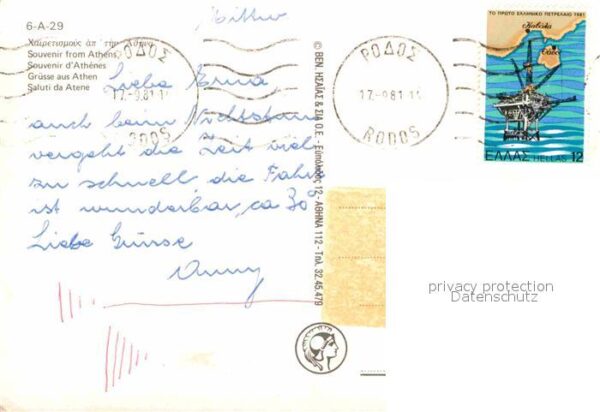 6-A-29
Χαιρετισμούς ἀπ' τήν Ἀθήνα
Souvenir from Athens
Souvenir d'Athénes
Grüsse aus Athen
Saluti da Atene
Liebe
auch beim
vergeht die Zeit viel
zu schnell die
ist wunderbar, ca 30°
Liebe Grüsse
Anny
© ΒΕΝ. ΗΣΑΪΑΣ & ΣΙΑ Ο.Ε. - Εὐπόλιδος 12 - ΑΘΗΝΑ 112 - Τηλ. 32.45.479
ΡΟΔΟΣ
17.-9.81-1
RODOS
ΡΟΔΟΣ
17.-9.81-1
RODOS
ΤΟ ΠΡΩΤΟ ΕΛΛΗΝΙΚΟ ΠΕΤΡΕΛΑΙΟ 1981
Καβάλα
Θάσος
ΕΛΛΑΣ HELLAS 12
privacy protection
Datenschutz